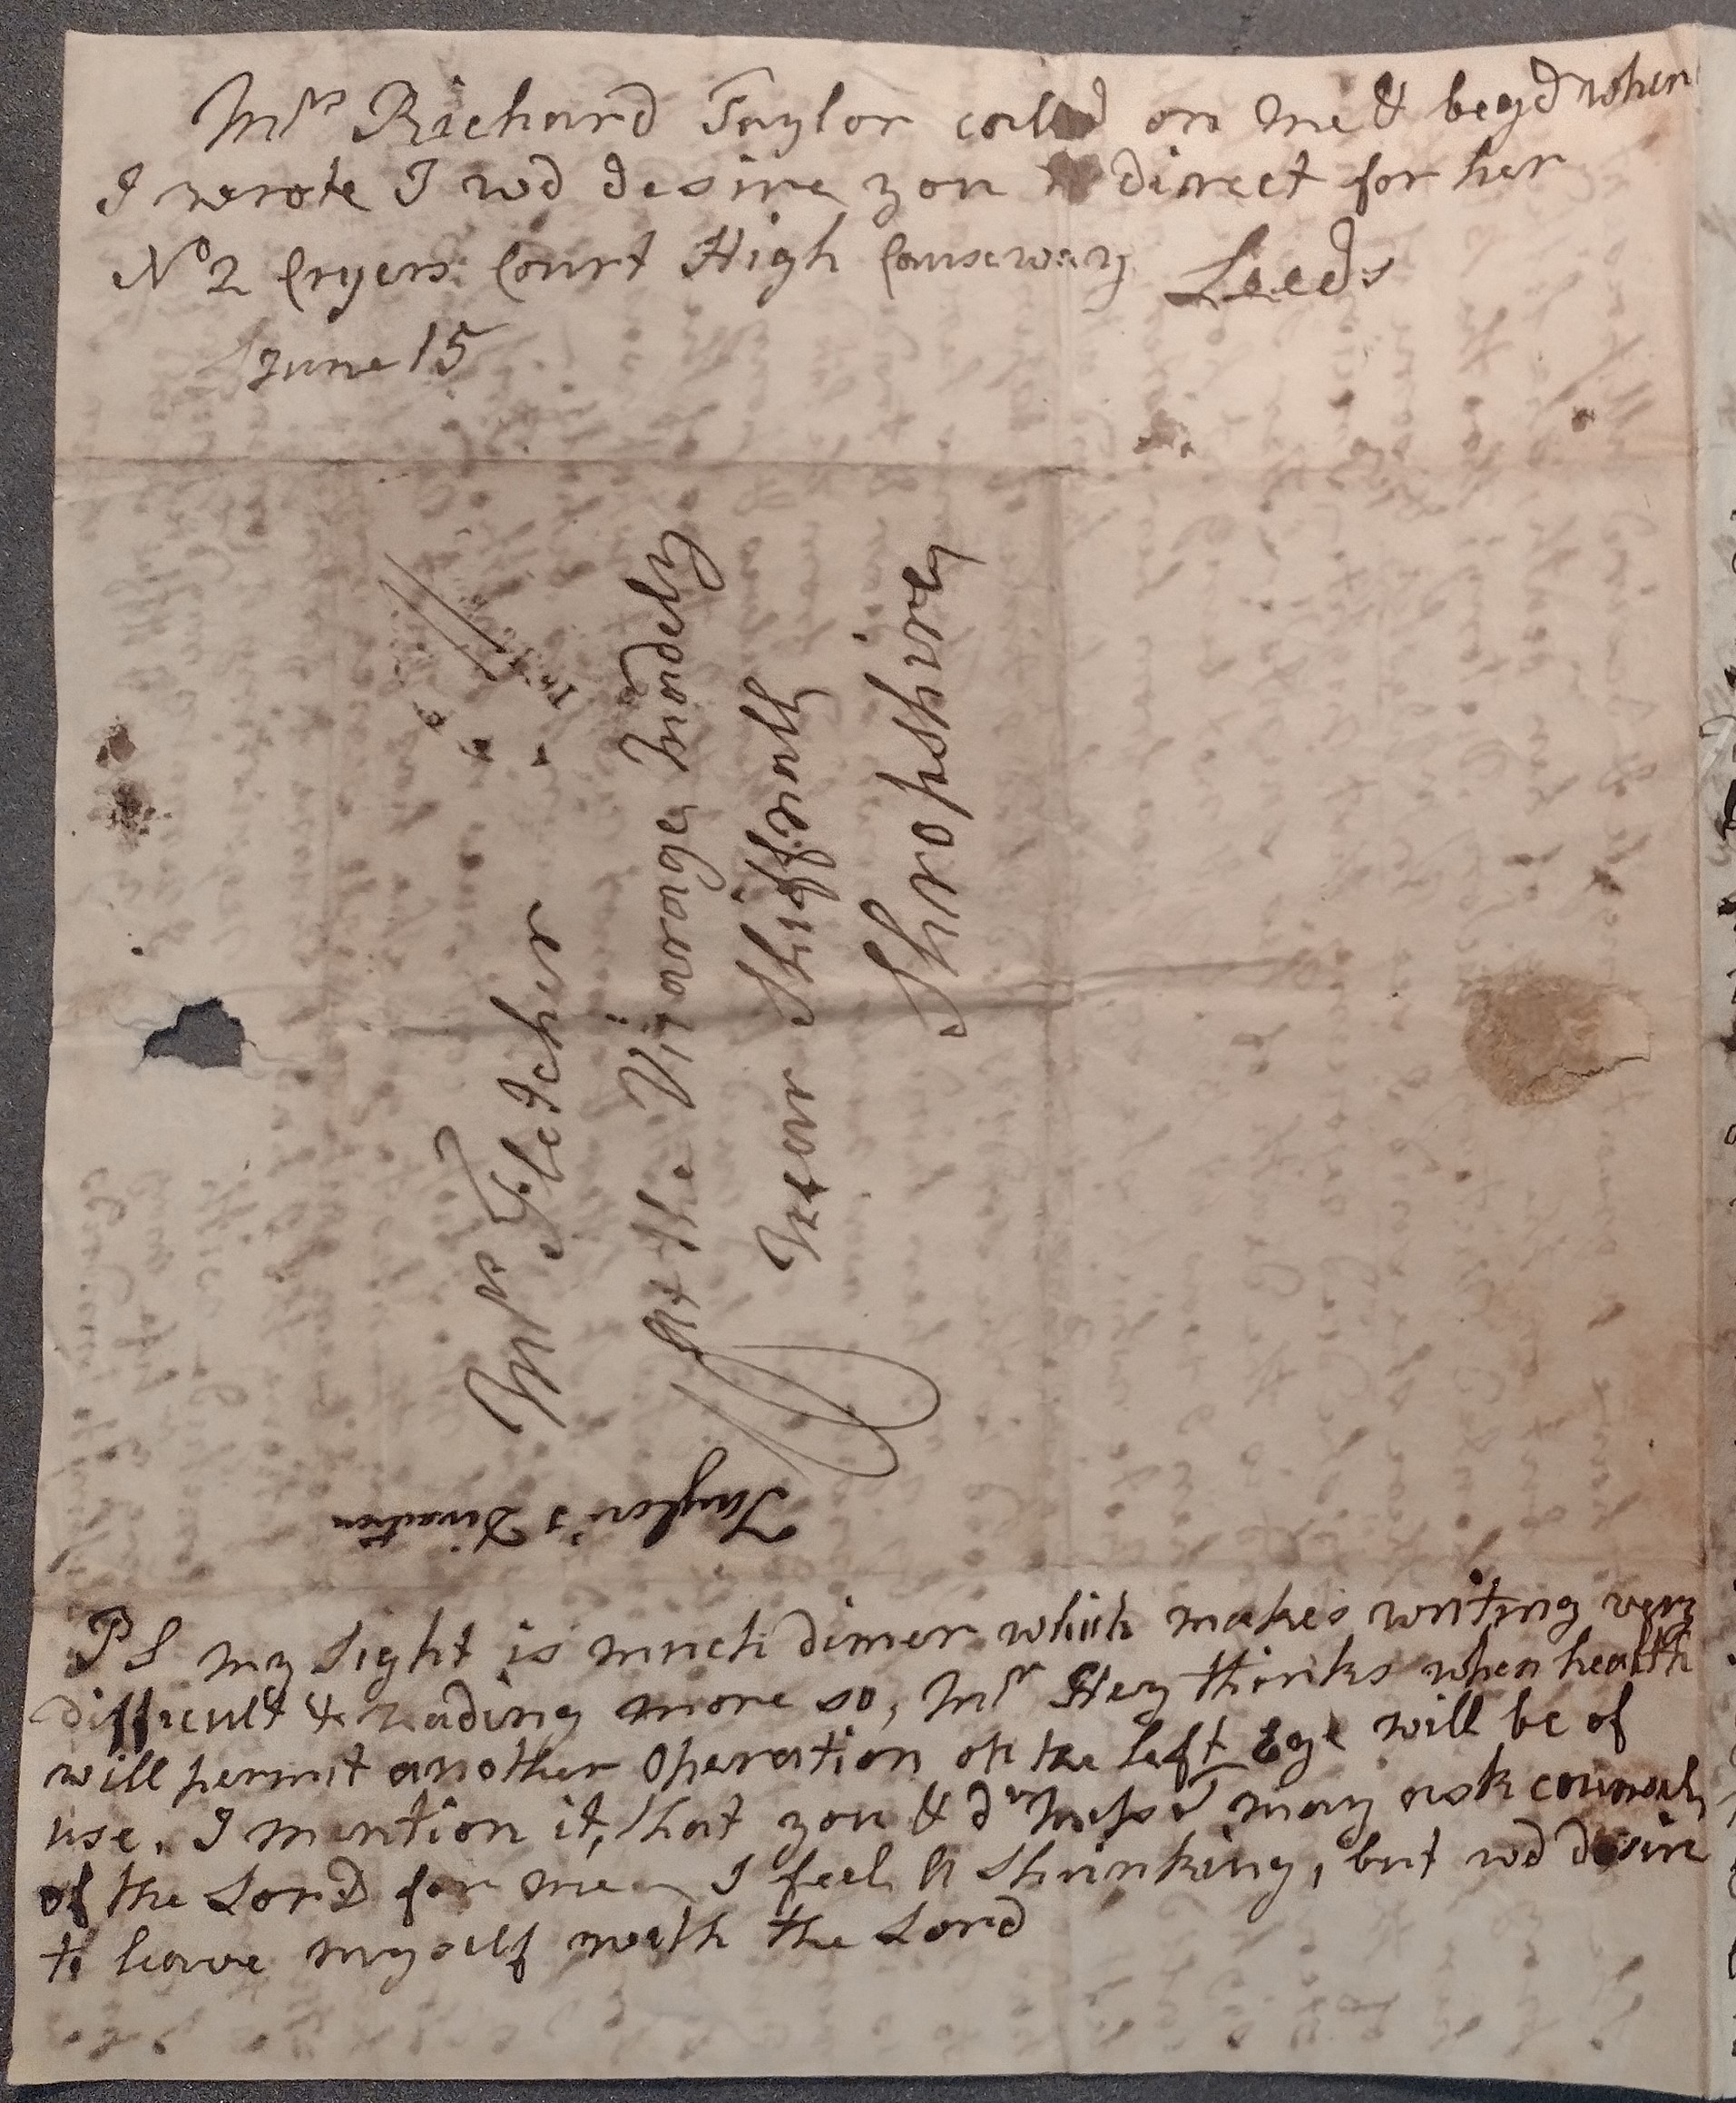 Mrs Richard Taylor called on me & begd when
I wrote I wd desire you to direct for her
No 2 Cryers Court High Causeway Leeds
June 15
Mrs Fletcher
At the Vigarage Madely
Near Shiffnall
Shropshire
Taylor's Direction
PS my Sight is much dimer which makes writing very
difficult & reading more so, Mr Hey thinks when health
will permit another Operation on the left Eye will be of
use. I mention it, that you & dr may ask councel
of the Lord for me I feel a Shrinking, but wd desire
to leave myself with the Lord